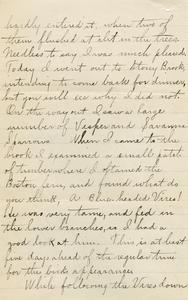 hardly entered it, when two of
them flushed at
Needless to say I was much pleased.
Today I went out to Stony Brook,
intending to come back for dinner,
but you will see why I did not.
On the way out I saw a large
number of Vesper and Savanna
Sparrows. When I came to the
brook I examined a small patch
of timber where I obtained the
Boston fern, and found what do
you think, A Blue-headed Vireo!
He was very tame, and fed in
the lower branches, so I had a
good look at him. This is at least
five days ahead of the regular time
for the bird's appearance.
While following the Vireo down